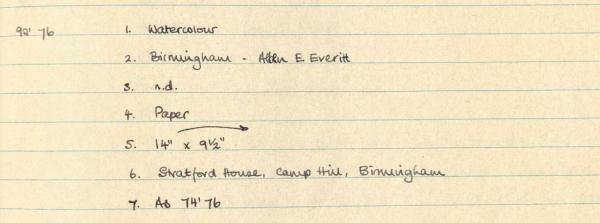 92' 76 1. Watercolour
2. Birmingham - Allen E. Everitt
3. n.d.
4. Paper
5. 14" x 9½"
6. Stratford House, Camp Hill, Birmingham
7. As 74' 76